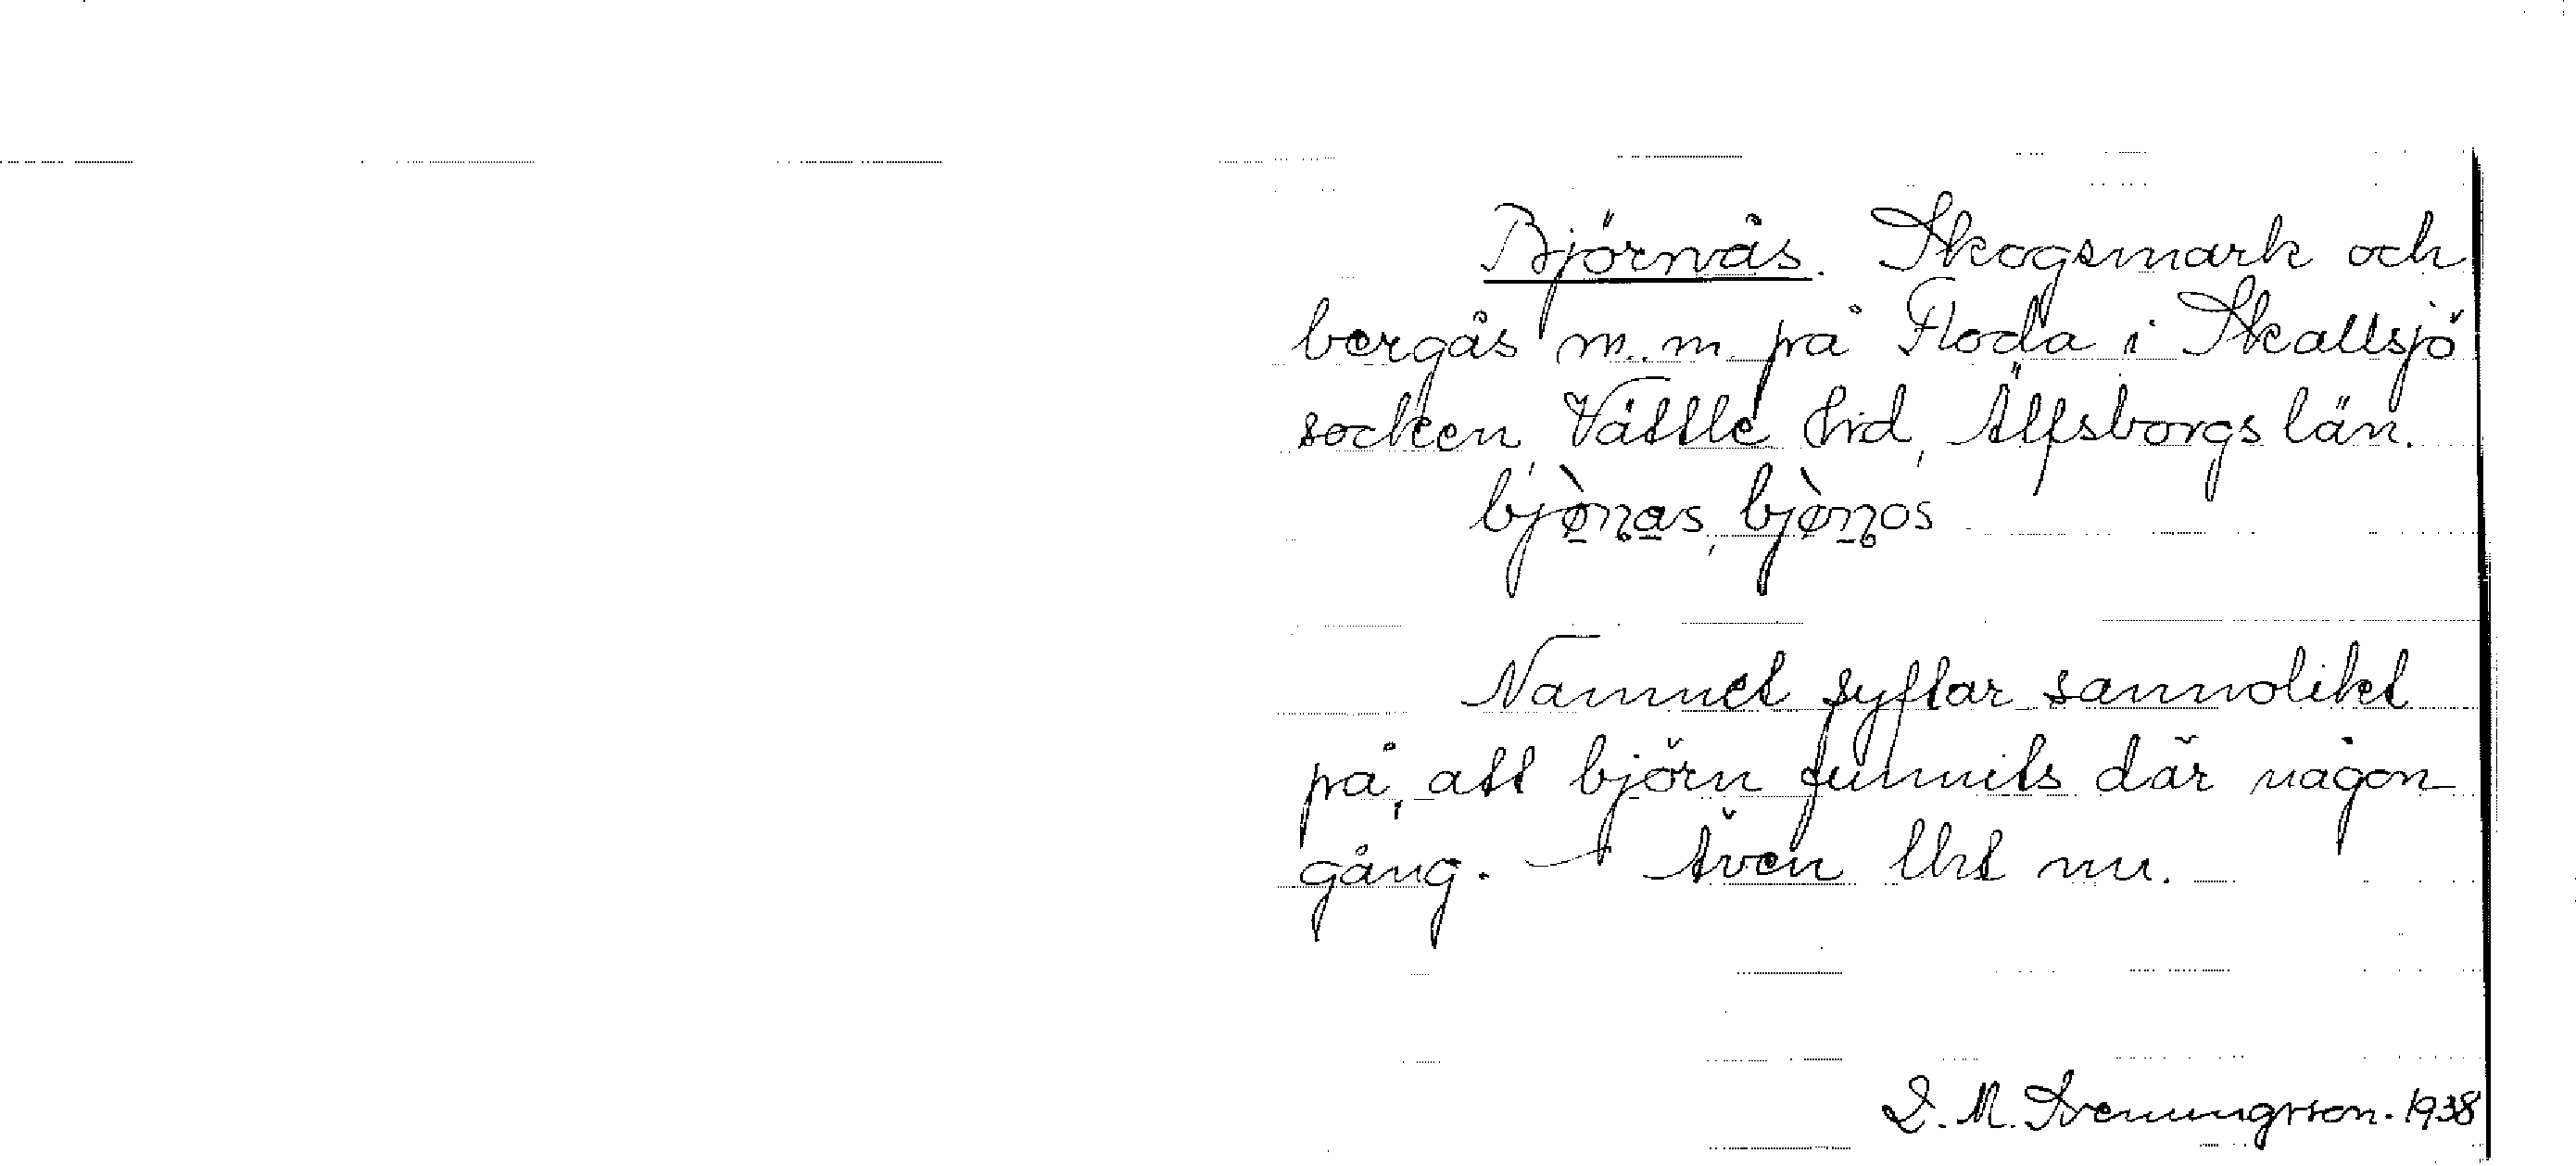 Björnvås. Skogsmark och
bergås m.m på Floda i Skallsjö
socken, Vättle hrd, Älfsborgs län.
bjø̀ṇas, bjø̀ṇos
Namnet syftar sannolikt
på, att björn funnits där någon
gång. — Även tht nu.
D. M. Svenungsson. 1938